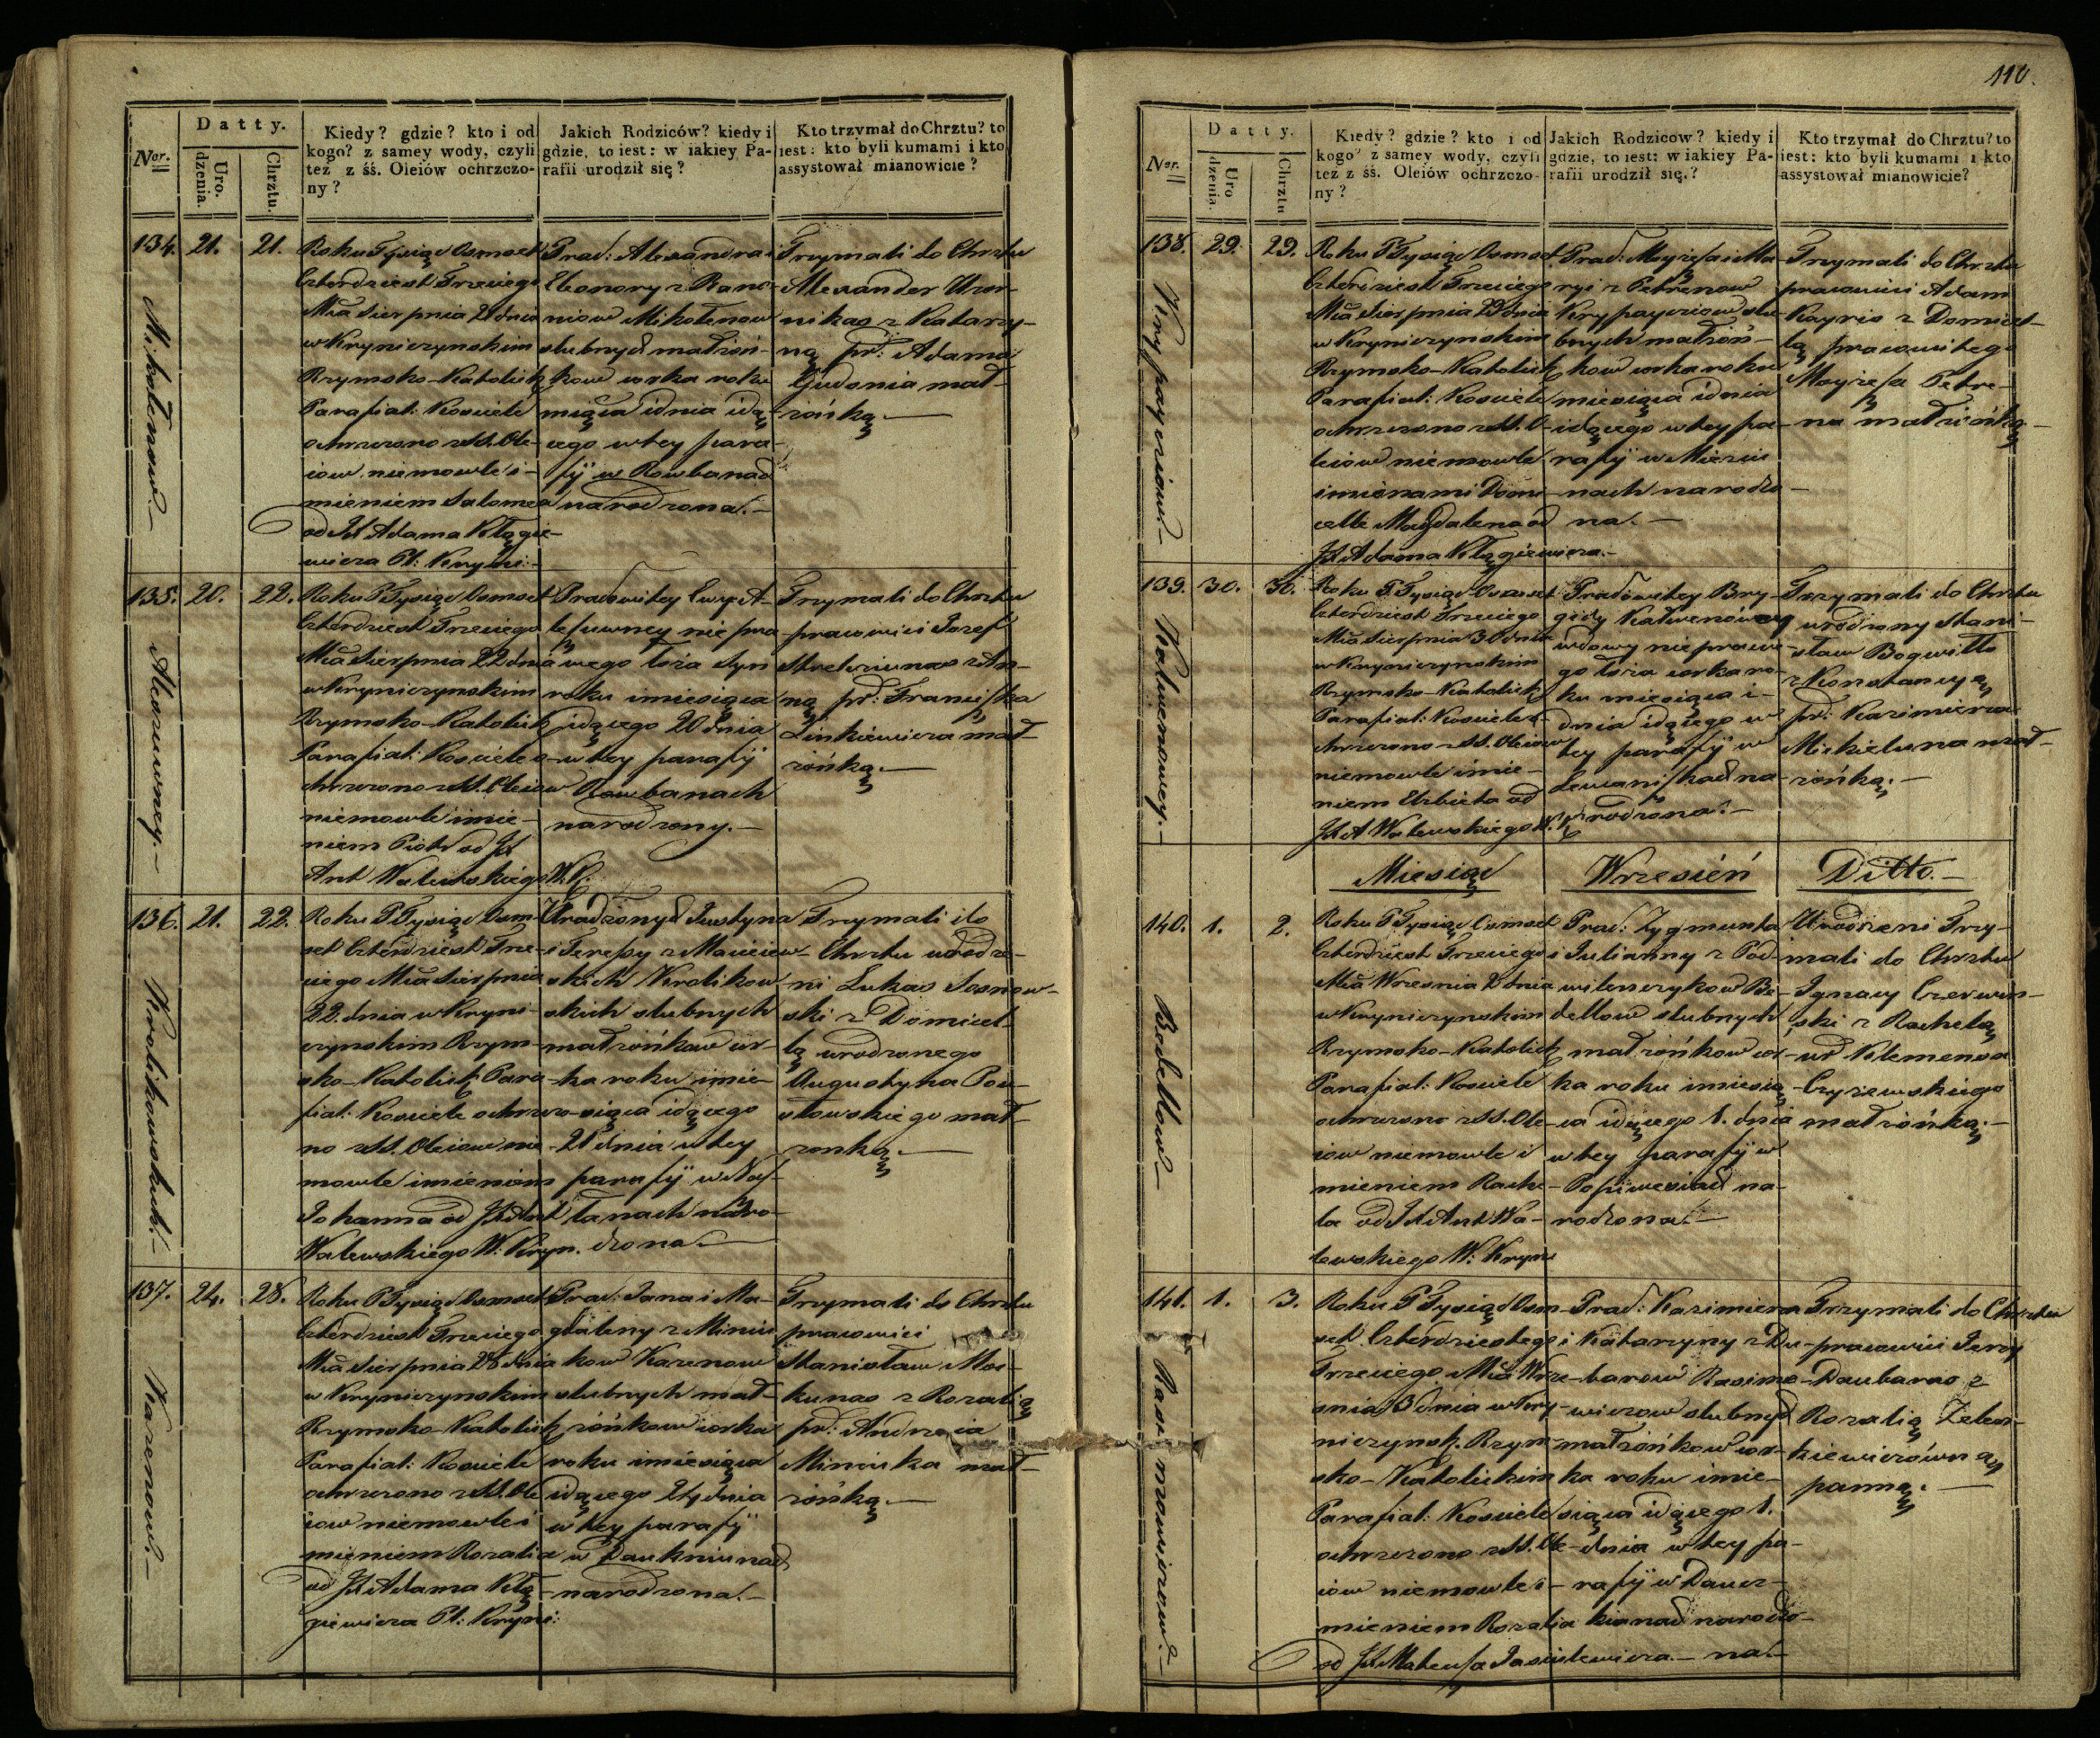 110.
Nor.
Datty.
Uro.
dzenia.
Chrztu.
Kiedy? gdzie? kto i od
kogo? z samey wody, czyli
też z śś. Oleiów ochrzczo-
ny?
Jakich Rodziców? kiedy i
gdzie, to iest: w iakiey Pa-
rafii urodził się?
Kto trzymał do Chrztu? to
iest: kto byli kumami i kto
assystował mianowicie?
134.
21.
21.
Mikołenow.-
Roku Tysiąc Osmset
Czterdziest Trzeciego
Mca Sierpnia 21 dnia
w Kryniczynskim
Rzymsko-Katolick
Parafial: Kosciele
ochrzczono z SS. Ole-
iow niemowle i-
mieniem Salomea
od JX Adama
Prad: Alexandra i
Eleonory z
Mikołenow
slubnych małżoń-
kow corka roku
miąca i dnia idą-
cego w tey para-
fÿ w Rowbanach
narodzona.-
Trzymali do Chrztu
Alexander
z Katarzy-
ną pr: Adama
Gudonia mał-
żonką.-
135.
20.
22.
Roku P Tysiąc Osmset
Czterdziest Trzeciego
Mca Sierpnia 22 dnia
w Kryniczynskim
Rzymsko-Katolick
Parafial: Kosciele o-
chrzczono z SS. Oleiow
niemowle imie-
niem Piotr od JX
Ant Walewskiego W.K.
Pracowitey Ewy
nie pra-
wego łoża syn
roku i miesiąca
idącego 20 dnia
w tey parafÿ
Rowbanach
narodzony.-
Trzymali do Chrztu
pracowici Jozef
ną pr: Franciszka
Linkiewicza mał-
żonką.-
136.
21.
22.
Krolikowskich.-
Roku P Tysiąc Osm-
set Czterdziest Trze-
ciego Mca Sierpnia
22. dnia w Kryni-
czynskim Rzym-
sko-Katolick Para-
fial: Kosciele ochrzczo-
no z SS. Oleiow nie-
mowle imieniem
Johanna od JX Ant
Walewskiego W: Kryn.
Uradzonych Justyna
i Teresy z Maciejew-
skich Krolikow-
skich slubnych
małżońkow cor-
ka roku i mie-
siąca idącego
21 dnia w tey
parafÿ w
narodzona
Trzymali do
Chrztu urodze-
ni Lukas Sosnow-
ski z Domicel-
lą urodzonego
Augustyna
mał-
zonką.-
137.
24.
28.
Kazenow.-
Roku P Tysiąc Osmset
Czterdziest Trzeciego
Mca Sierpnia 28 dnia
w Kryniczynskim
Rzymsko-Katolick
Parafial: Kosciele
ochrzczono z SS. Ole
iow niemowle i
mieniem Rozalia
od JX Adama
Pl: Kryni:
Prad: Jana i Ma-
gdaleny z Miniu
kow Kazenow
slubnych mał-
żońkow corka
roku i miesiąca
idącego 24 dnia
w tey parafÿ
w Daukniunach
narodzona.-
Trzymali do Chrztu
pracowici
Stanisław Mac-
kunas z Rozalią
pr: Andrzeia
Miniuka mał-
żońką.-
Nor.
Datty.
Uro
dzenia.
Chrztu
Kiedy? gdzie? kto i od
kogo? z samey wody, czyli
też z śś. Oleiów ochrzczo-
ny?
Jakich Rodziców? kiedy i
gdzie, to iest: w iakiey Pa-
rafii urodził się?
Kto trzymał do Chrztu? to
iest: kto byli kumami i kto
assystował mianowicie?
138.
29.
29.
Roku P Tysiąc Osmset
Czterdziest Trzeciego
Mca Sierpnia 29 dnia
w Kryniczynskim
Rzymsko-Katolick
Parafial: Kosciele
ochrzczono z SS. O-
leiow niemowle
imionami Domi-
cella Magdalena od
JX Adama
Prad: Moyzesza i Ma-
ryi z Petrenow
slu-
bnych małżoń-
kow corka roku
miesiąca i dnia
idącego w tey pa-
rafÿ w
narodzo-
na.-
Trzymali do Chrztu
pracowici Adam
Kayris z Domicel-
lą pracowitego
Moyzesza Petre-
na małżońką.-
139.
30.
30.
Kaluenowey.-
Roku P Tysiąc Osmset
Czterdziest Trzeciego
Mca Sierpnia 30 dnia
w Kryniczynskim
Rzymsko-Katolick
Parafial: Kosciele o-
chrzczono z SS. Oleiow
niemowle imie-
niem Elzbieta od
JX A Walewskiego W. K
Pracowitey Bry-
gidy
wdowy nieprawe-
go łoża corka ro-
ku miesiąca i
dnia idącego w
tey parafÿ w
na-
rodzona.-
Trzymali do Chrztu
urodzony Stani-
sław Bogwiłło
z Konstancyą
pr: Kazimierza
Mickieluna mał-
żońką.-
Miesiąc Wrzesień Ditto.-
140.
1.
2.
Bedellow-
Roku P Tysiąc Osmset
Czterdziest Trzeciego
Mca Wrzesnia 2 dnia
w Kryniczynskim
Rzymsko-Katolick
Parafial: Kosciele
ochrzczono z SS. Ole-
iow niemowle i
mieniem Rache-
la od JX Ant Wa-
lewskiego W: Kryni
Prad: Zygmunta
i Julianny z Pod-
Be-
dellow slubnych
małżońkow cor-
ka roku i miesią-
ca idącego 1. dnia
w tey parafÿ w
na-
rodzona.-
Urodzeni Trzy-
mali do Chrztu
Ignacy Czerwin-
ski z Rachelą
ur Klemensa
Czyzewskiego
małżońką.-
141.
1.
3.
Rasimowiczow.-
Roku P Tysiąc Osm-
set Czterdziestego
Trzeciego Mca Wrze-
snia 3 dnia w Kry-
niczynsk. Rzym-
sko-Katolickim
Parafial: Kosciele
ochrzczono z SS. Ole-
iow niemowle i-
mieniem Rozalia
od JX Mateusza
Prad: Kazimierza
i Katarzyny z Du-
barow Rasimo-
wiczow slubnych
małżońkow cor-
ka roku i mie-
siąca idącego 1.
dnia w tey pa-
rafÿ w
narodzo-
na.-
Trzymali do Chrztu
pracowici Jerzy
Daubaras z
Rozalią
panną.-